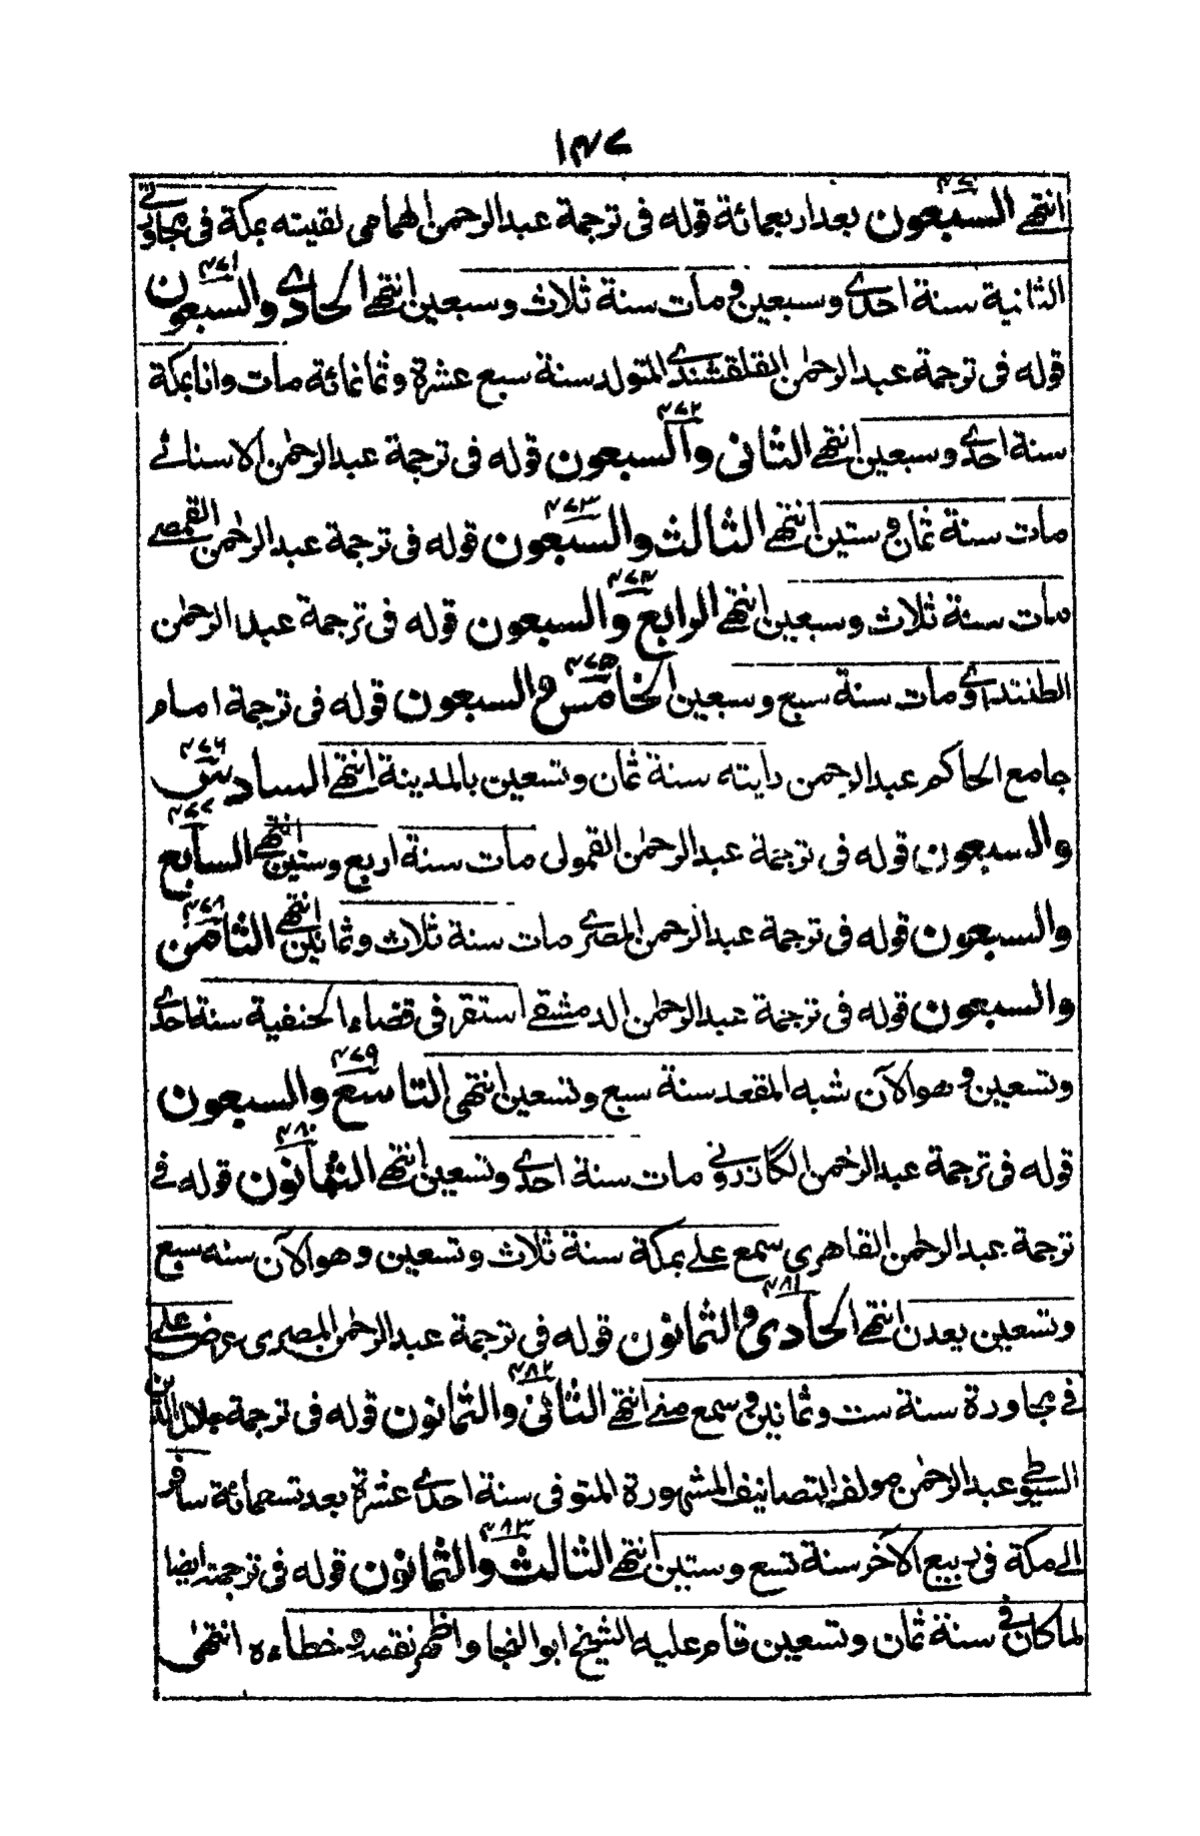 ١٤٧
٤٧٠
انتهى السبعون بعد اربعمائة قوله فى ترجمة عبدالرحمن الهمامى لقيته بمكة فى مجاورتى
٤٧١
الثانية سنة احدى وسبعين و مات سنة ثلاث وسبعين انتهى الحادى والسبعون
قوله فى ترجمة عبدالرحمٰن القلقشندى المتولد سنة سبع عشرة وثمانمائة مات وانا بمكة
٤٧٢
سنة احدى وسبعين انتهى الثانى والسبعون قوله فى ترجمة عبدالرحمٰن الاسنائے
٤٧٣
مات سنة ثمان و ستين انتهى الثالث والسبعون قوله فى ترجمة عبدالرحمٰن القمصے
٤٧٤
مات سنة ثلاث وسبعين انتهى الرابع والسبعون قوله فى ترجمة عبدالرحمٰن
٤٧٥
الطنتداوى مات سنة سبع وسبعين الخامس و السبعون قوله فى ترجمة امام
٤٧٦
جامع الحاكم عبدالرحمن رايته سنة ثمان وتسعين بالمدينة انتهى السادس
٤٧٧
والسبعون قوله فى ترجمة عبدالرحمٰن القمولى مات سنة اربع وستين انتهى السابع
٤٧٨
والسبعون قوله فى ترجمة عبدالرحمن المصرى مات سنة ثلاث وثمانين انتهى الثامن
والسبعون قوله فى ترجمة عبدالرحمٰن الدمشقے استقر فى قضاء الحنفية سنة احدى
٤٧٩
وتسعين و هو الآن شبه المقعد سنة سبع وتسعين انتهى التاسع والسبعون
٤٨٠
قوله فى ترجمة عبدالرحمن الكازرونے مات سنة احدى وتسعين انتهى الثمانون قوله فى
ترجمة عبدالرحمٰن القاهرى سمع علے بمكة سنة ثلاث وتسعين وهو الآن سنه سبع
٤٨١
وتسعين بعدن انتهى الحادى و الثمانون قوله فى ترجمة عبدالرحمٰن المصرى عرض علے
٤٨٢
فى مجاورة سنة ست وثمانين و سمع منے انتهى الثانى والثمانون قوله فى ترجمة جلال الدين
السيوطى عبدالرحمٰن مولف التصانيف المشهورة المتوفى سنة احدى عشرة بعد تسعمائة سافر
٤٨٣
الے مكة فى ربيع الآخر سنة تسع وستين انتهى الثالث والثمانون قوله فى ترجمته ايضا
لما كان فى سنة ثمان وتسعين قام عليه الشيخ ابو النجا واظهر نقصه و خطاءه انتهىٰ